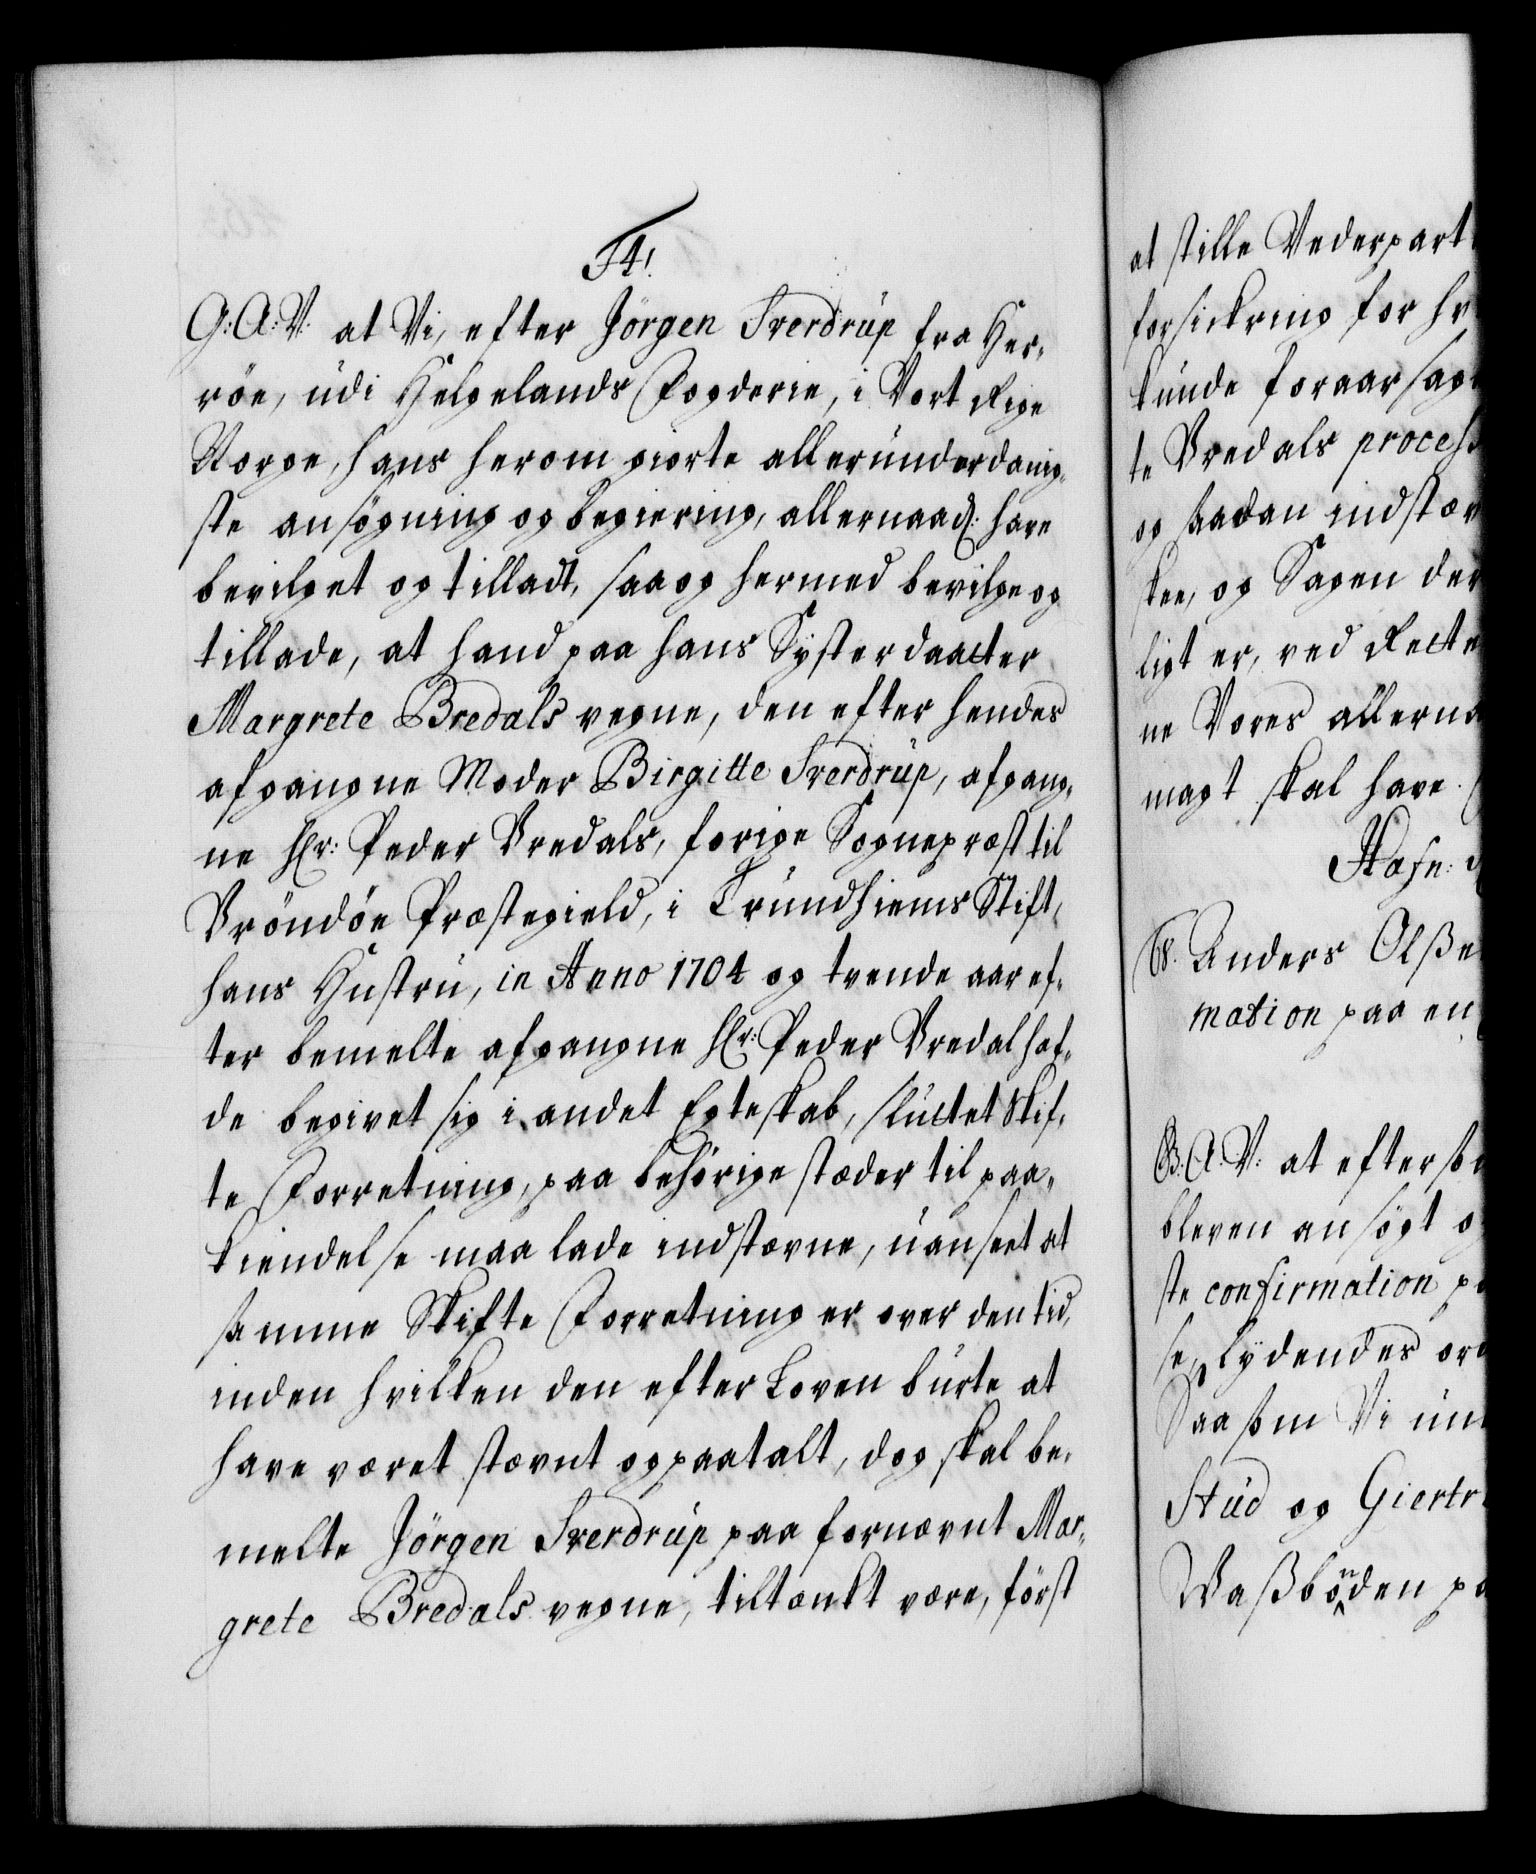 F4!
G: A: V. at Vi, efter Jörgen Sverdrup fra Her-
röe, udi Helgelands Fogderie, i Vort Rige
Norge, hans herom giorte allerunderdanig-
ste ansögning og begiering, allernaad: have
bevilget og tilladt, saa og hermed bevilge og
tillade, at hand paa hans Sÿsterdaatter
Margrete Bredals vegne, den efter hendes
afgangne Moder Birgitte Sverdrup, afgang-
ne Hr: Peder Bredals, forige Sognepræst til
Bröndöe Præstegield, i Trundhiems Stift,
hans Hustru, in Anno 1704 og tvende aar ef-
ter bemelte afgangne Hr: Peder Bredal haf-
de begivet sig i andet Egteskab, sluttet Skif-
te Forretning, paa behörige stæder til paa-
kiendelse maa lade indstævne, uanseet at
samme Skifte Forretning er over den tid,
inden hvilken den efter Loven burte at
have været stævnt og paatalt, dog skal be-
melte Jörgen Sverdrup paa fornævnt Mar-
grete Bredals vegne, tiltænkt være, först
at stille Vederpart
forsickring for
kunde foraarsag
te Bredals process
og saadan indstæv
skee, og Sagen der
ligt er, ved Rette
ne Vores allerna
magt skal have.
Hafn:
68. Anders Olßе
mation paa en
B. A. V: at efter
bleven ansögt
ste confirmation
se, lÿdendes ord
Saasom Vi un
Stud og Giertr
Waßbonden